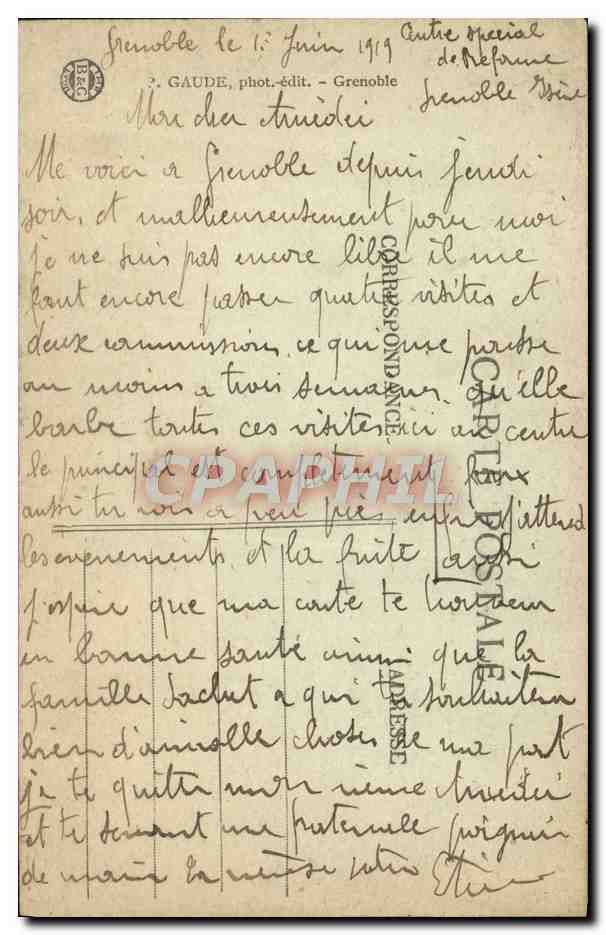 Grenoble le 1er Juin 1919
Centre special
de Reforme
Grenoble Isère
P. GAUDE, phot.-édit. - Grenoble
B&G
Mon cher Amédéi
Me voici a Grenoble depuis Jeudi
soir, et malheureusement pour moi
je ne suis pas encore libre il me
faut encore passer quatre visites et
deux commissions, ce qui me pousse
au moins a trois semaines. qu'elle
barbe toutes ces visites, ici au centre
le principal est completement
aussi tu vois a peu près enfin j'attend
les evenements et la suite aussi
j'espère que ma carte te trouvera
en bonne santé ainsi que la
famille a qui tu souhaitera
bien d'aimable choses de ma part
je te quitte mon Amédéi
et te serrant une fraternelle poignée
de main
CORRESPONDANCE
CARTE POSTALE
ADRESSE
CPAPHIL